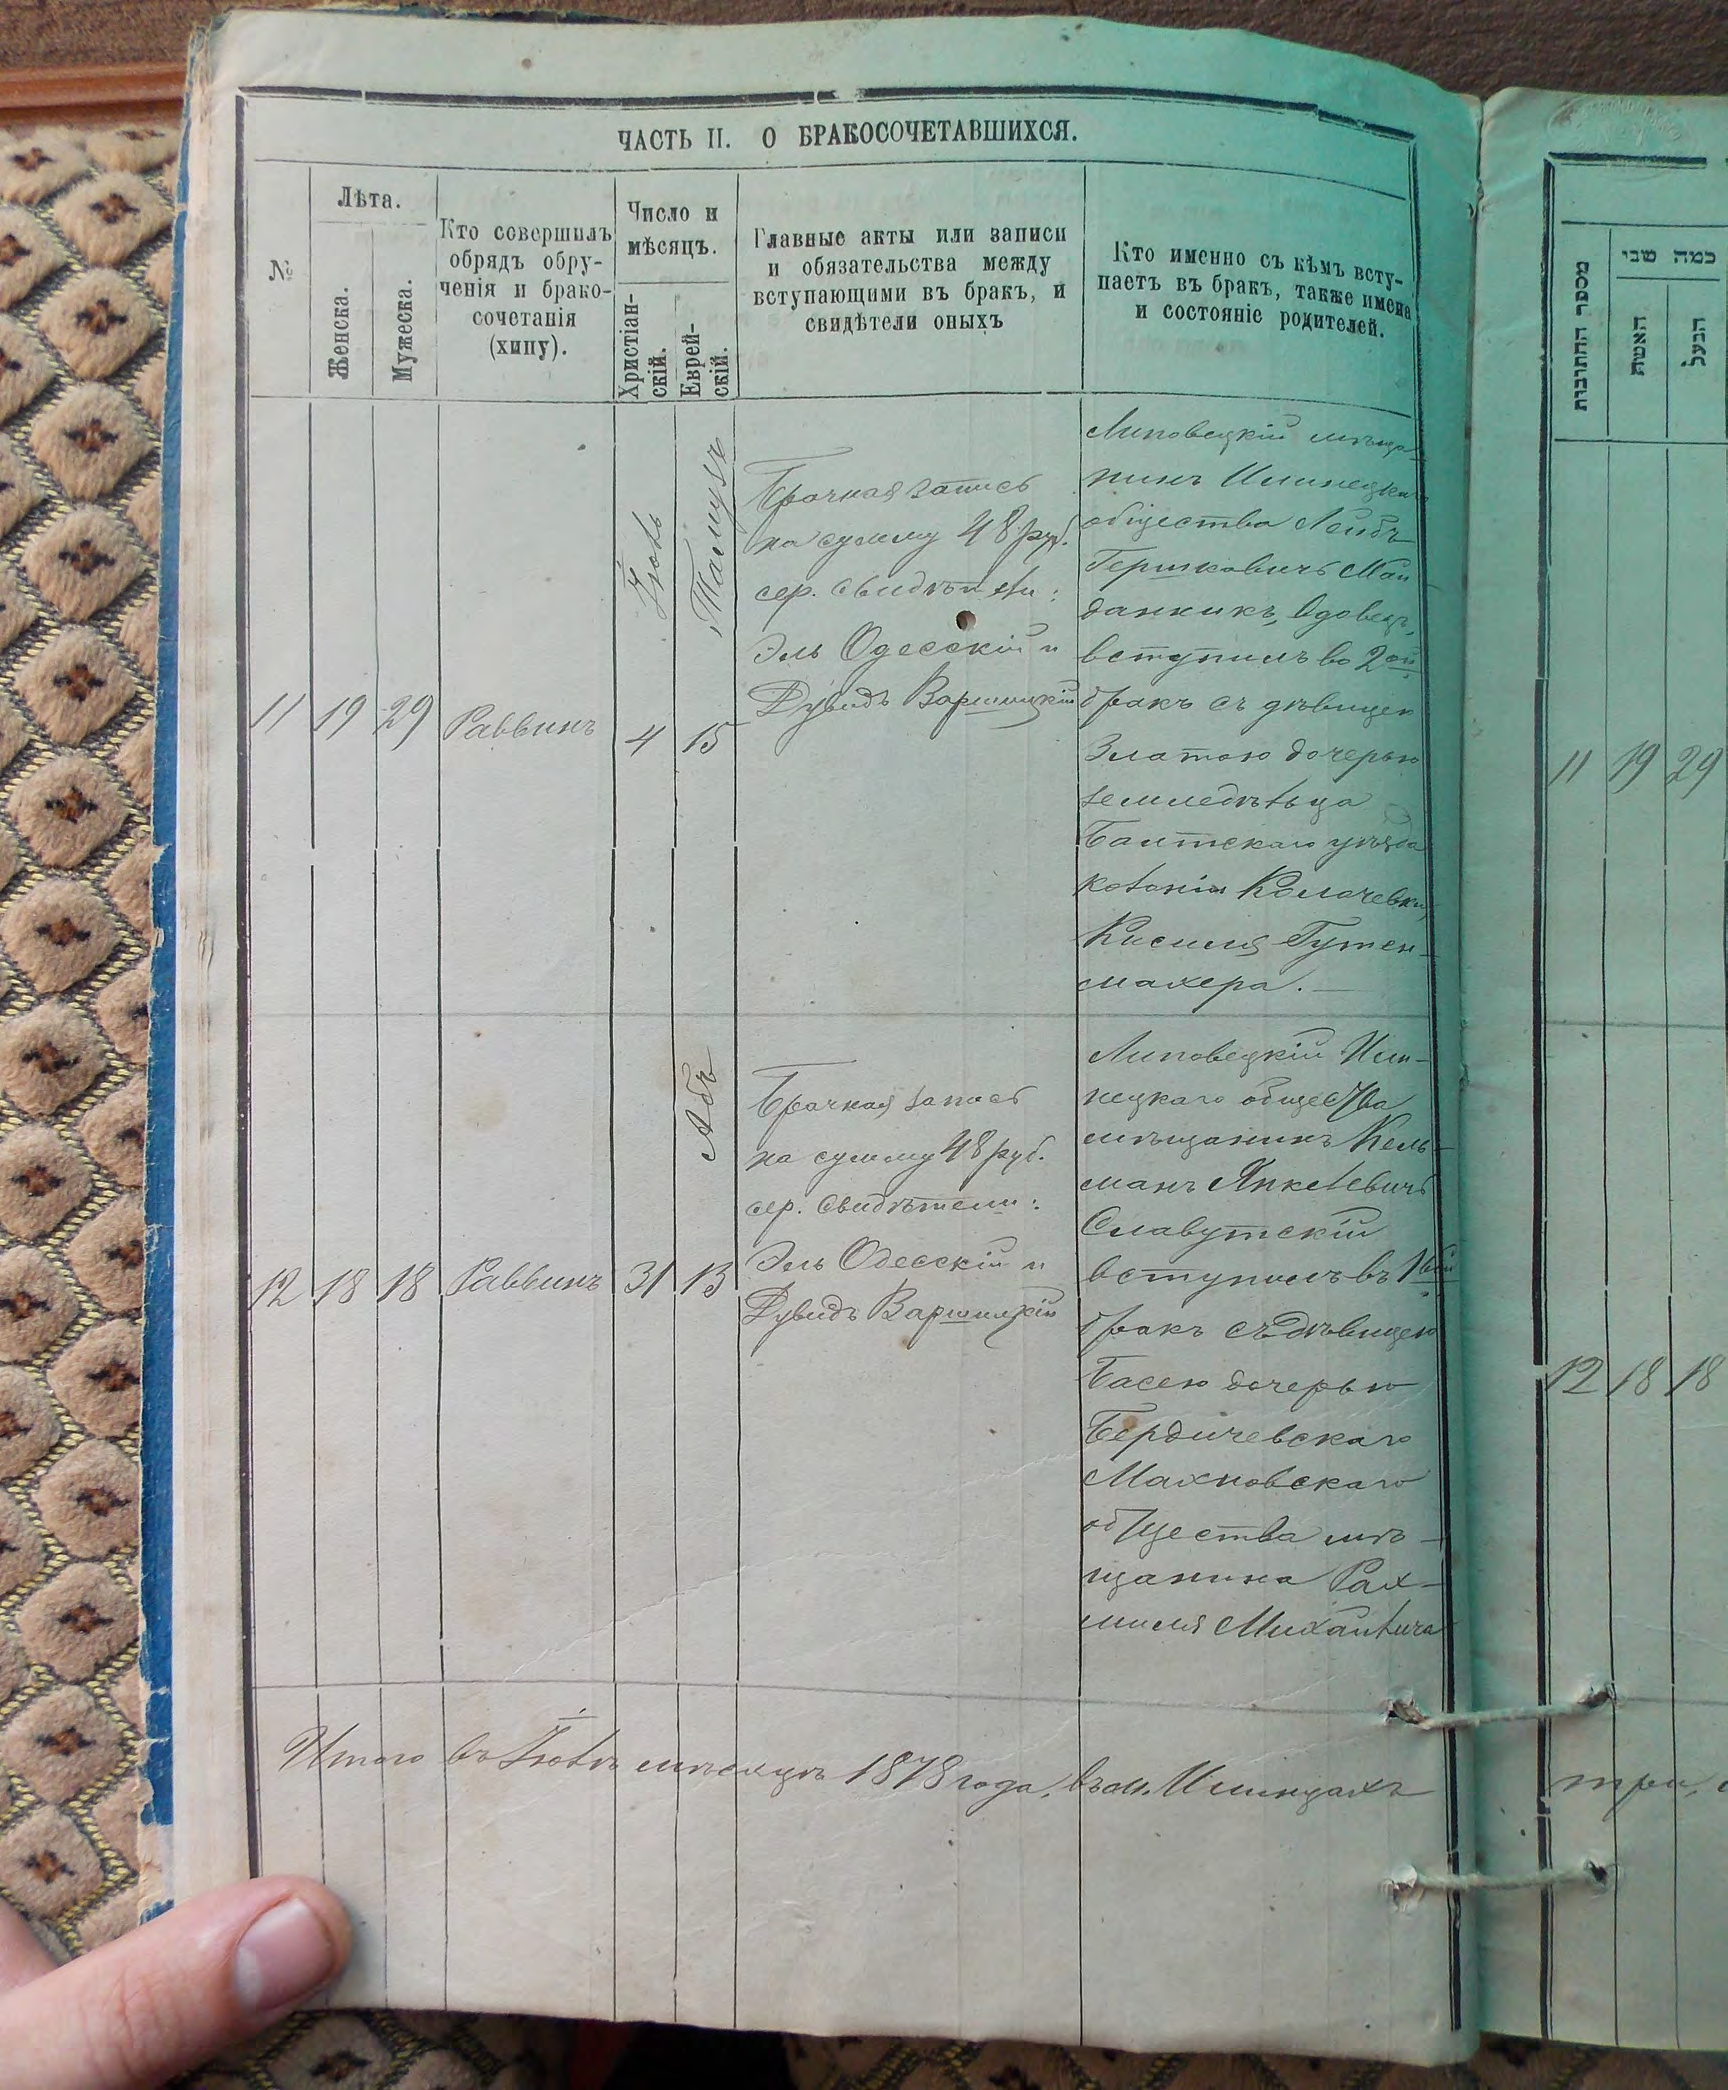 ЧАСТЬ II. О БРАКОСОЧЕТАВШИХСЯ.
№
Лѣта.
Женска.
Мужеска.
Кто совершилъ
обрядъ обру-
ченія и брако-
сочетанія
(хипу).
Число и
мѣсяцъ.
Христіан-
скій.
Еврей-
скій.
Главные акты или записи
и обязательства между
вступающими въ бракъ, и
свидѣтели оныхъ
Кто именно съ кѣмъ всту-
паетъ въ бракъ, также имена
и состояніе родителей.
11
19
29
Раввинъ
Іюль
4
Тамузъ
15
Брачная запись
на сумму 48 руб.
сер. Свидѣтели:
Эль Одесскій и
Дувидъ Варшицкій
Липовецкій мѣща-
нинъ Илинецкаго
общества Лейбъ
Гершковичъ Май-
данникъ, вдовецъ,
вступилъ во 2ой
бракъ съ дѣвицею
Златою дочерью
земледѣльца
Балтскаго уѣзда
колоніи
Кисиля Гутен-
махера. —
12
18
18
Раввинъ
31
Абъ
13
Брачная запись
на сумму 48 руб.
сер. Свидѣтели:
Эль Одесскій и
Дувидъ Варшицкій
Липовецкій Или-
нецкаго общества
мѣщанинъ Кель-
манъ Янкелевичъ
Славутскій
вступилъ въ 1ый
бракъ съ дѣвицею
Басею дочерью
Бердичевскаго
Махновскаго
общества мѣ-
щанина Рах-
миля
Итого въ Іюлѣ мѣсяцѣ 1878 года, въ м. Илинцахъ
מספר החתונות
כמה שני
האשה
הבעל
11
19
29
12
18
18
три,